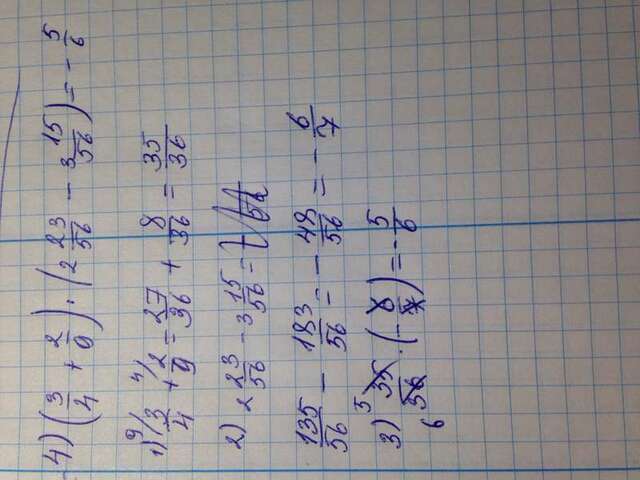 4) (3/4 + 2/9) · (2 23/56 - 3 15/56) = - 5/6
1) 9/ 3/4 + 4/ 2/9 = 27/36 + 8/36 = 35/36
2) 2 23/56 - 3 15/56 =
135/56 - 183/56 = - 48/56 = - 6/7
3) 5 35/56 6 · (- 6/7) = - 5/6